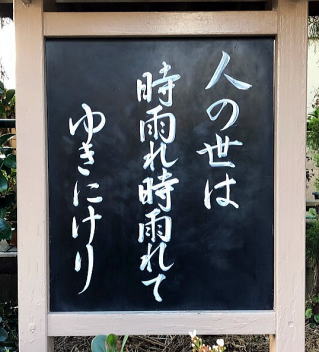 人の世は
時雨れ時雨れて
ゆきにけり